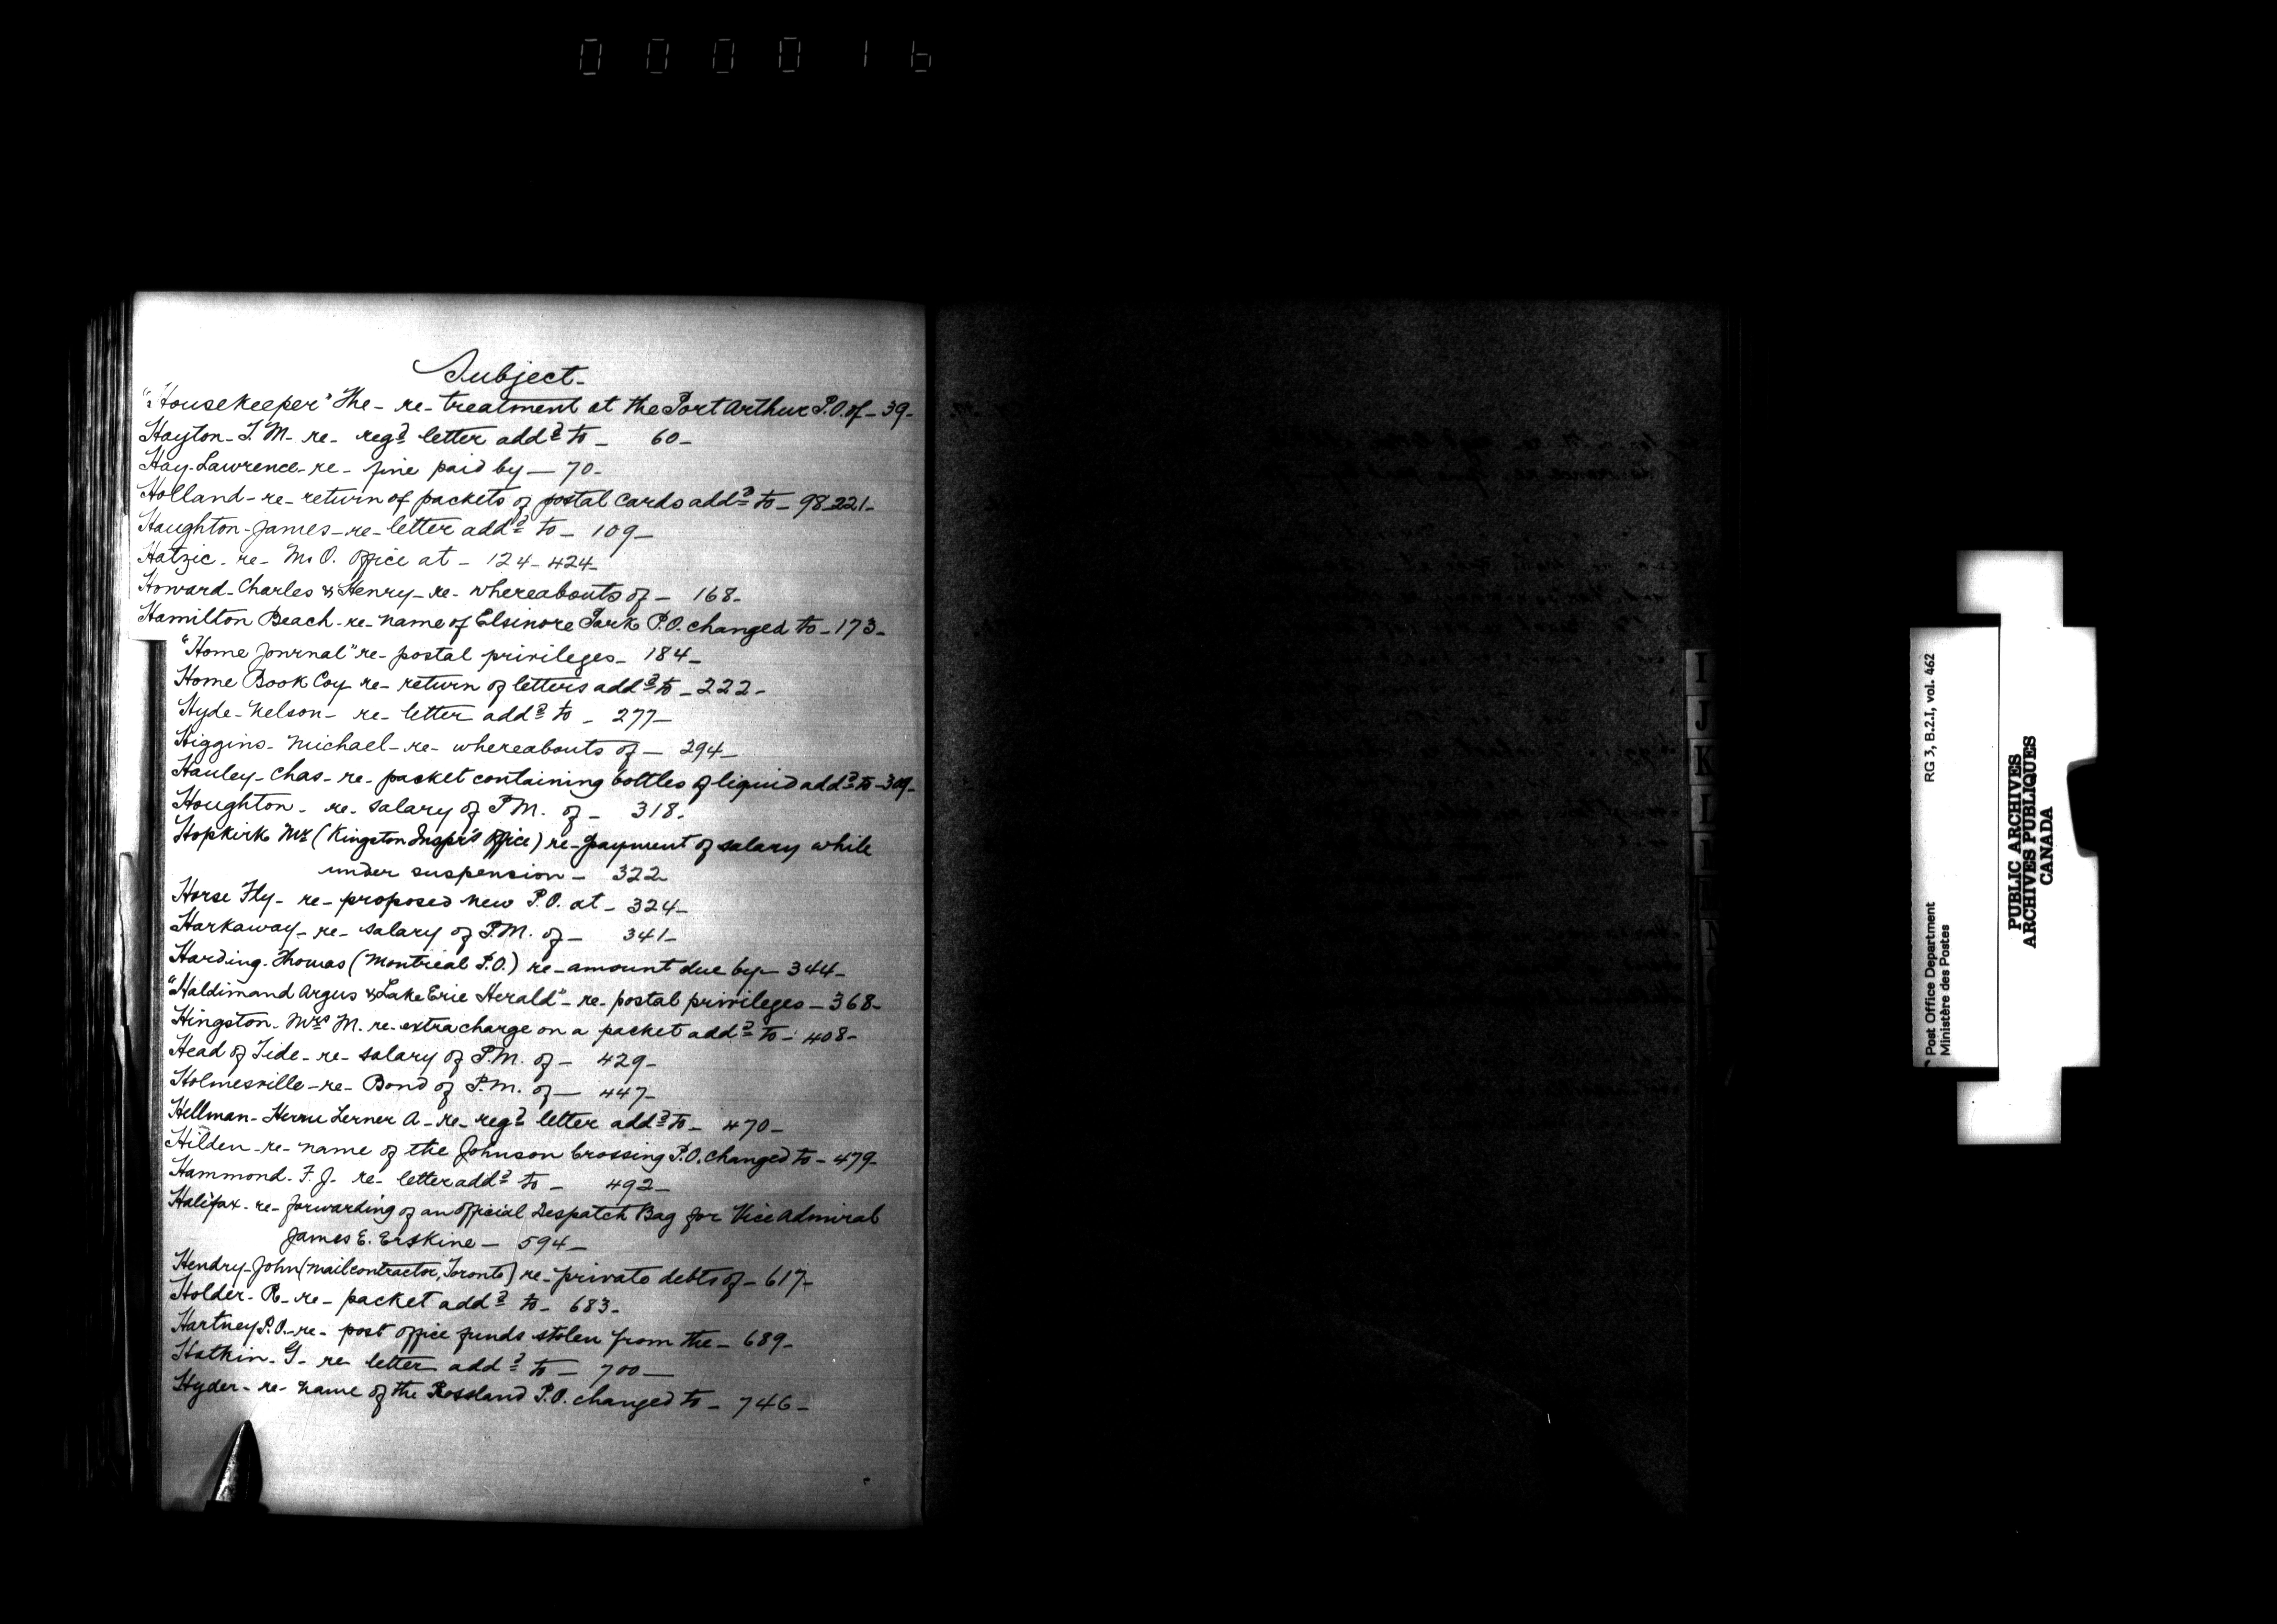 000016
Subject-
"Housekeeper" The- re- treatment at the Port Arthur P.O. of - 39-
Hayton- T. M- re- regd letter addd to - 60-
Hay- Lawrence- re- fine paid by - 70-
Holland- re- return of packets of postal cards addd to - 98-221-
Haughton- James- re- letter addd to - 109-
Hatzic- re- M.O. Office at - 124- 424-
Howard- Charles & Henry- re- whereabouts of - 168-
Hamilton Beach- re- name of Elsinore Park P.O. changed to - 173-
"Home Journal" re- postal privileges- 184-
Home Book Coy- re- return of letters addd to - 222-
Hyde- Nelson- re- letter addd to - 277-
Higgins- Michael- re- whereabouts of - 294-
Hauley- Chas- re- packet containing bottles of liquid addd to - 309-
Houghton- re- salary of P.M. of - 318.
Hopkirk Mr (Kingston Inspr's Office) re- payment of salary while
under suspension - 322
Horse Fly- re- proposed new P.O. at - 324-
Harkaway- re- salary of P.M. of - 341-
Harding- Thomas (Montreal P.O.) re- amount due by- 344-
"Haldimand Argus & Lake Erie Herald"- re- postal privileges - 368-
Hingston- Mrs M. re- extra charge on a packet addd to - 408-
Head of Tide- re- salary of P.M. of - 429-
Holmesville- re- Bond of P.M. of - 447-
Hellman- Lerner A- re- regd letter addd to - 470-
Hilden- re- name of the Johnson Crossing P.O. changed to - 479-
Hammond- F. J. re- letter addd to - 492-
Halifax- re- forwarding of an official Despatch Bag for Vice Admiral
James E. Erskine - 594-
Hendry- John (Mail contractor, Toronto) re- private debts of - 617-
Holder- R- re- packet addd to - 683-
Hartney P.O.- re- post office funds stolen from the - 689-
Hatkin- G- re letter addd to - 700-
Hyder- re- name of the Rossland P.O. changed to - 746-
I
J
K
L
N
RG 3, B.2.I, vol. 462
Post Office Department
Ministère des Postes
PUBLIC ARCHIVES
ARCHIVES PUBLIQUES
CANADA